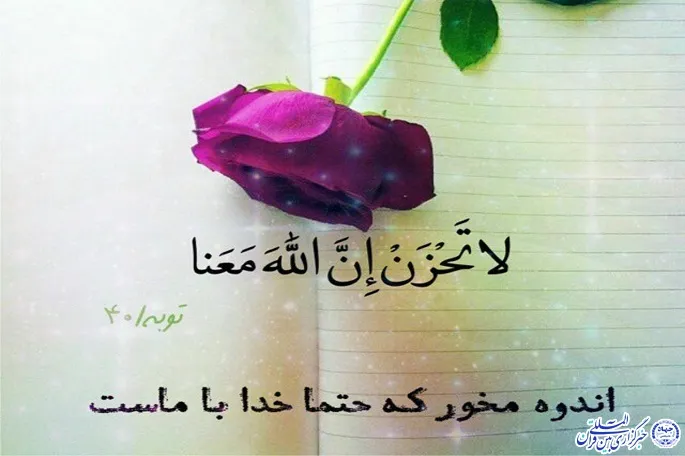 لا تَحْزَنْ إِنَّ اللَّهَ مَعَنا
توبه/۴۰
اندوه مخور که حتما خدا با ماست
خبرگزاری بین المللی قرآن